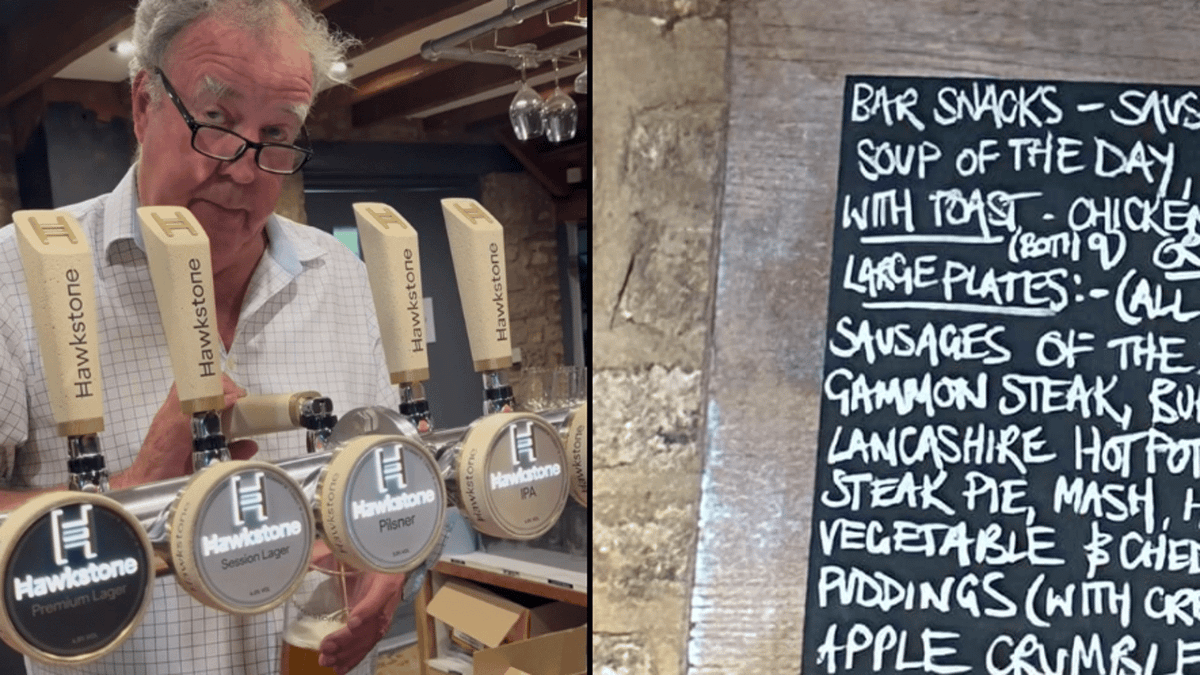 Hawkstone
Hawkstone
Hawkstone
Hawkstone
Hawkstone
Premium Lager
Hawkstone
Session Lager
Hawkstone
Pilsner
Hawkstone
IPA
BAR SNACKS - SAUS
SOUP OF THE DAY,
WITH TOAST - CHICKEN
(BOTH V) OR
LARGE PLATES:- (ALL
SAUSAGES OF THE
GAMMON STEAK, BU
LANCASHIRE HOTPOT
STEAK PIE, MASH, H
VEGETABLE & CHEE
PUDDINGS (WITH CRE
APPLE CRUMBLE